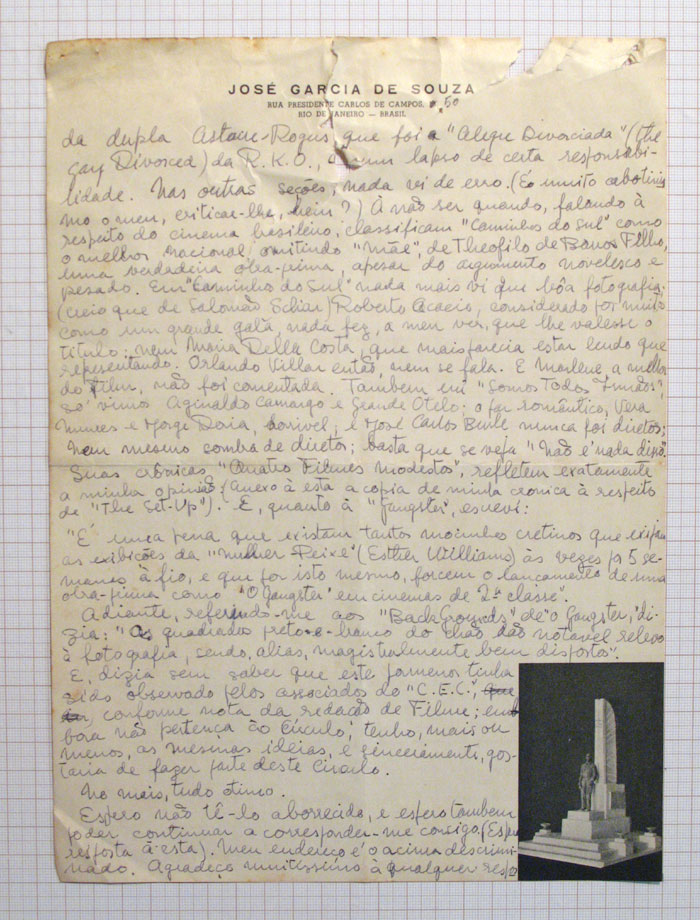 JOSÉ GARCIA DE SOUZA
RUA PRESIDENTE CARLOS DE CAMPOS, 50
RIO DE JANEIRO — BRASIL
da dupla Astaire-Rogers que foi a "Alegre Divorciada" (The
Gay Divorced) da R.K.O., é um lapso de certa responsabi-
lidade. Nas outras seções, nada vi de erro. (É muito cabotinis
mo o meu, criticar-lhe, hein?) À não ser quando, falando à
respeito do cinema brasileiro, classificam "Caminhos do Sul" como
o melhor nacional, omitindo "Mãe", de Theofilo de Barros Filho,
uma verdadeira obra-prima, apesar do argumento novelesco e
pesado. Em "Caminhos do Sul" nada mais vi que bôa fotografia.
(creio que de Salomão Scliar) Roberto Acacio, considerado por muitos
como um grande galã, nada fez, a meu ver, que lhe valesse o
titulo; nem Maria Della Costa, que mais parecia estar lendo que
representando. Orlando Villar então, nem se fala. E Marlene, a melhor
do film, não foi comentada. Tambem em "Somos Todos Irmãos",
só vimos Aginaldo Camargo e Grande Otelo; o par romântico, Vera
Nunes e Jorge Doria, horivel, e José Carlos Burle nunca foi diretor;
nem mesmo sombra de diretor; basta que se veja "Não é nada disso".
Suas crônicas "Quatro Filmes modestos", refletem exatamente
a minha opinião (anexo à esta a copia de minha cronica à respeito
de "The Set-Up"). E, quanto à "Gangster", escrevi:
"É uma pena que existam tantos mocinhos cretinos que exijam
as exibições da "Mulher Peixe" (Esther Williams) às vezes p/ 5 se-
manas à fio, e que por isto mesmo, forcem o lançamento de uma
obra-prima como "O Gangster" em cinemas de 2ª classe".
Adiante, referindo-me aos "BackGrounds" de "O Gangster", di-
zia: "Os quadrados preto-e-branco do chão dão notavel relevo
à fotografia, sendo, alias, magistralmente bem dispostos".
E, dizia sem saber que este pormenor tinha
sido observado pelos associados do "C.E.C.",
conforme nota da redação de Filme; em-
bora não pertença ao Circulo, tenho, mais ou
menos, as mesmas idéias, e sinceramente, gos-
taria de fazer parte deste Circulo.
No mais, tudo otimo.
Espero não tê-lo aborrecido, e espero tambem
poder continuar a corresponder-me consigo. (Espero
resposta à esta). Meu endereço é o acima descrimi-
nado. Agradeço muitissimo à qualquer respo